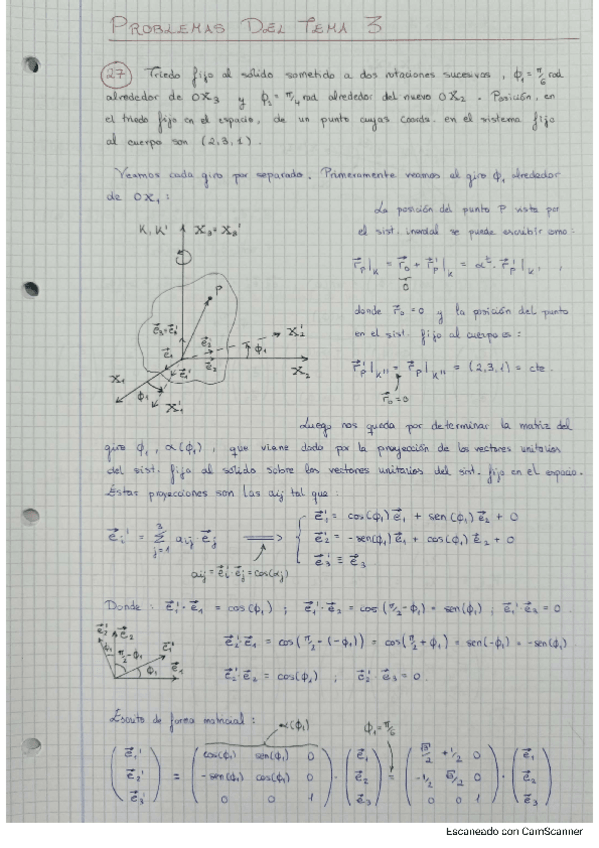 PROBLEMAS DEL TEMA 3
27 Triedo fijo al sólido sometido a dos rotaciones sucesivas, ϕ₁ = π/6 rad
alrededor de OX₃ y ϕ₂ = π/4 rad alrededor del nuevo OX₂. Posición, en
el triedo fijo en el espacio, de un punto cuyas coords. en el sistema fijo
al cuerpo son (2,3,1).
Veamos cada giro por separado. Primeramente veamos el giro ϕ₁ alrededor
de OX₁:
La posición del punto P vista por
el sist. inercial se puede escribir como:
K, K' X₃ = X₃'
r⃗p|K = r⃗₀ + r⃗p'|K = αᵗ · r⃗p'|K',
0⃗
P
donde r⃗₀ = 0 y la posición del punto
en el sist. fijo al cuerpo es:
e⃗₃ = e⃗₃'
e⃗₁ e⃗₂' e⃗₂ e⃗₁'
X₂' ϕ₁ X₂
r⃗p'|K'' = r⃗p|K'' = (2,3,1) = cte.
r⃗₀ = 0
X₁ ϕ₁ X₁'
Luego nos queda por determinar la matriz del
giro ϕ₁, α(ϕ₁), que viene dado por la proyección de los vectores unitarios
del sist. fijo al sólido sobre los vectores unitarios del sist. fijo en el espacio.
Estas proyecciones son las aij tal que:
e⃗₁' = cos(ϕ₁) e⃗₁ + sen(ϕ₁) e⃗₂ + 0
e⃗i' = Σ³j=1 aij e⃗j ⟹ e⃗₂' = -sen(ϕ₁) e⃗₁ + cos(ϕ₁) e⃗₂ + 0
e⃗₃' = e⃗₃
aij = e⃗i' · e⃗j = cos(αj)
Donde: e⃗₁' · e⃗₁ = cos(ϕ₁) ; e⃗₁' · e⃗₂ = cos(π/2 - ϕ₁) = sen(ϕ₁) ; e⃗₁' · e⃗₃ = 0.
e⃗₂' e⃗₂ ϕ₁ π/2 - ϕ₁ e⃗₁' ϕ₁ e⃗₁
e⃗₂' · e⃗₁ = cos(π/2 - (-ϕ₁)) = cos(π/2 + ϕ₁) = sen(-ϕ₁) = -sen(ϕ₁)
e⃗₂' · e⃗₂ = cos(ϕ₁) ; e⃗₂' · e⃗₃ = 0.
Escrito de forma matricial: α(ϕ₁) ϕ₁ = π/6
e⃗₁' cos(ϕ₁) sen(ϕ₁) 0 e⃗₁ √3/2 +1/2 0 e⃗₁
e⃗₂' = -sen(ϕ₁) cos(ϕ₁) 0 · e⃗₂ = -1/2 √3/2 0 · e⃗₂
e⃗₃' 0 0 1 e⃗₃ 0 0 1 e⃗₃
Escaneado con CamScanner